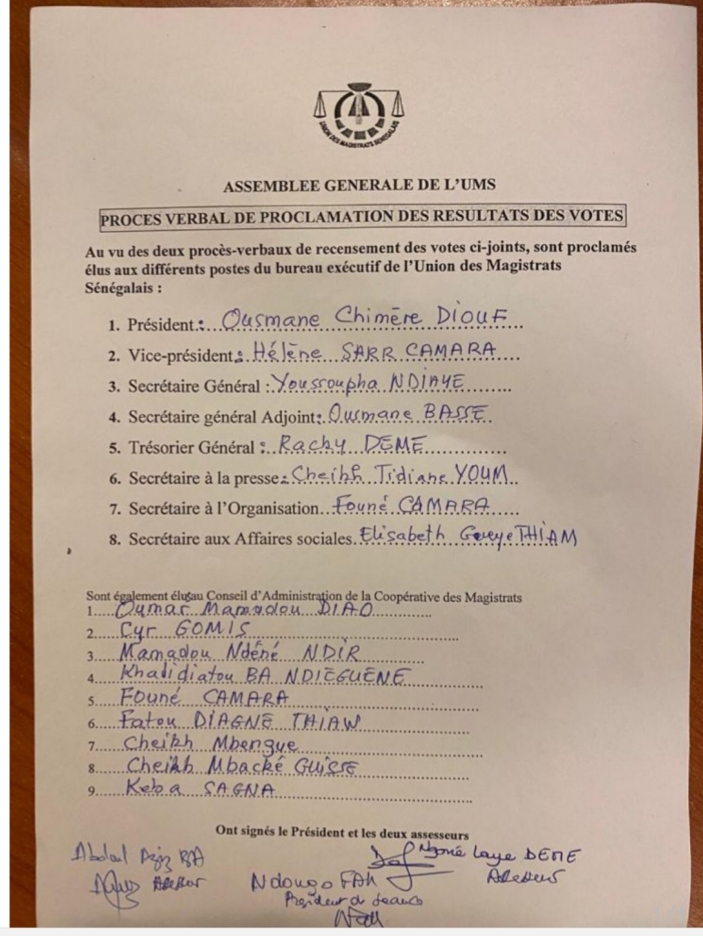 UNION DES MAGISTRATS SENEGALAIS
ASSEMBLEE GENERALE DE L'UMS
PROCES VERBAL DE PROCLAMATION DES RESULTATS DES VOTES
Au vu des deux procès-verbaux de recensement des votes ci-joints, sont proclamés
élus aux différents postes du bureau exécutif de l'Union des Magistrats
Sénégalais :
1. Président : Ousmane Chimère DIOUF
2. Vice-président : Hélène SARR CAMARA
3. Secrétaire Général : Youssoupha NDIAYE
4. Secrétaire général Adjoint : Ousmane BASSE
5. Trésorier Général : Racky DEME
6. Secrétaire à la presse : Cheikh Tidiane YOUM
7. Secrétaire à l'Organisation Founé CAMARA
8. Secrétaire aux Affaires sociales Elisabeth Gueye THIAM
Sont également élus au Conseil d'Administration de la Coopérative des Magistrats
1. Oumar Mamadou DIAO
2. Cyr GOMIS
3. Mamadou Ndéné NDIR
4. Khalidiatou BA NDIEGUENE
5. Founé CAMARA
6. Fatou DIAGNE THIAW
7. Cheikh Mbengue
8. Cheikh Mbacké GUISSE
9. Keba SAGNA
Ont signés le Président et les deux assesseurs
Abdoul Aziz BA
Assesseur
Ndongo FALL
Président de séance
Laye DEME
Assesseur